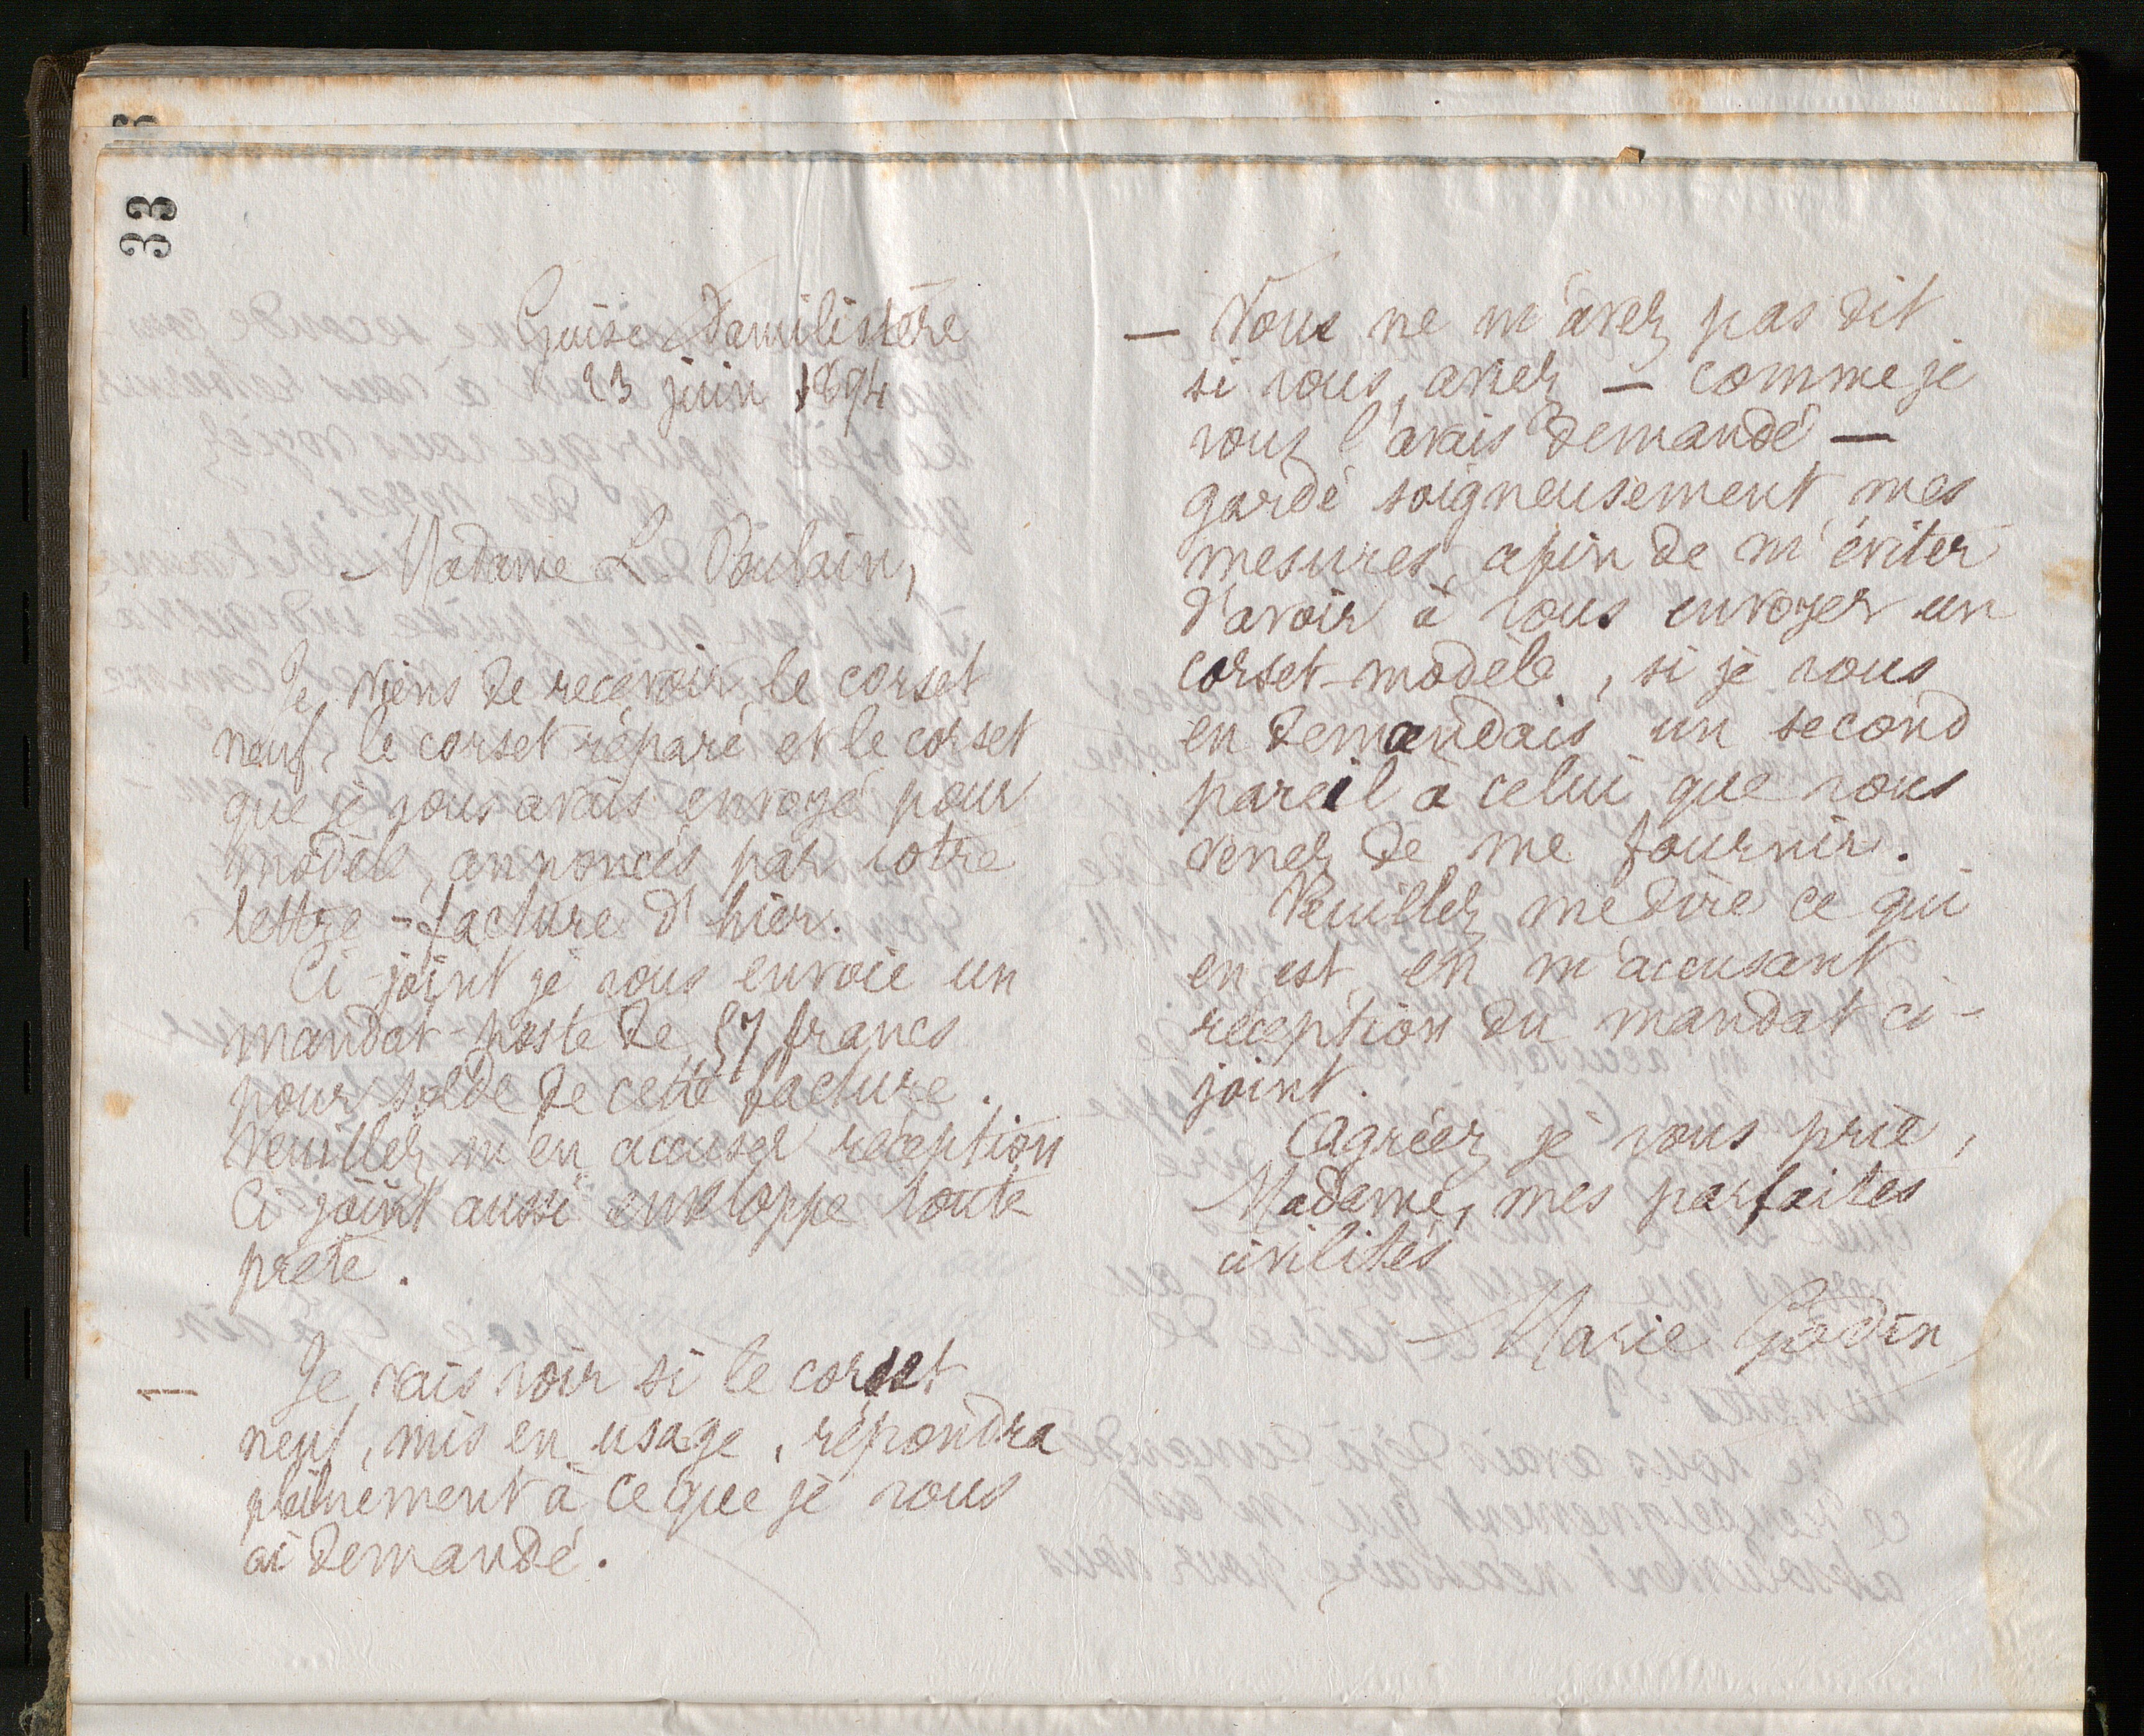 33
Guise Familistère
23 juin 1894
Madame L. Poulain,
Je viens de recevoir le corset
neuf, le corset réparé et le corset
que je vous avais envoyé pour
modèle, annoncés par votre
lettre-facture d'hier.
Ci-joint je vous envoie un
mandat-poste de 57 francs
pour solde de cette facture.
Veuillez m'en accuser réception
Ci-joint aussi enveloppe toute
prête.
Je vais voir si le corset
neuf, mis en usage, répondra
pleinement à ce que je vous
ai demandé.
— Vous ne m'avez pas dit
si vous aviez — comme je
vous l'avais demandé —
gardé soigneusement mes
mesures, afin de m'éviter
d'avoir à vous envoyer un
corset-modèle, si je vous
en demandais un second
pareil à celui que vous
venez de me fournir.
Veuillez me dire ce qui
en est, en m'accusant
réception du mandat ci-
joint.
Agréez, je vous prie,
Madame, mes parfaites
civilités
Marie Godin